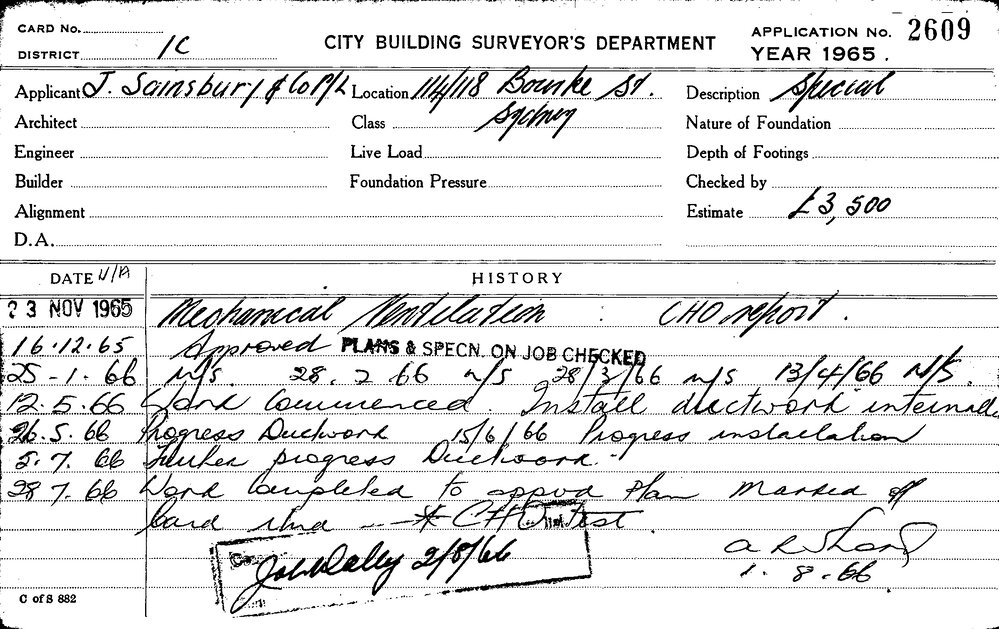 CARD No.
DISTRICT 1C
CITY BUILDING SURVEYOR'S DEPARTMENT
APPLICATION No. 2609
YEAR 1965.
Applicant J. Sainsbury & Co P/L Location 114/118 Bourke St. Description Special
Architect Class Sydney Nature of Foundation
Engineer Live Load Depth of Footings
Builder Foundation Pressure Checked by
Alignment Estimate £3,500
D.A.
DATE N/A HISTORY
23 NOV 1965 Mechanical Ventilation : CHO report.
16.12.65 Approved PLANS & SPECN. ON JOB CHECKED
25-1.66 N/S. 28.2.66 N/S 28/3/66 N/S 13/4/66 N/S.
12.5.66 Work Commenced. Install ductwork internally
26.5.66 Progress Ductwork 15/6/66 Progress installation
5.7.66 Further progress Ductwork.
28.7.66 Work Completed to appvd Plan Marked off
Card * CHO test.
2/8/66
1.8.66
C of S 882